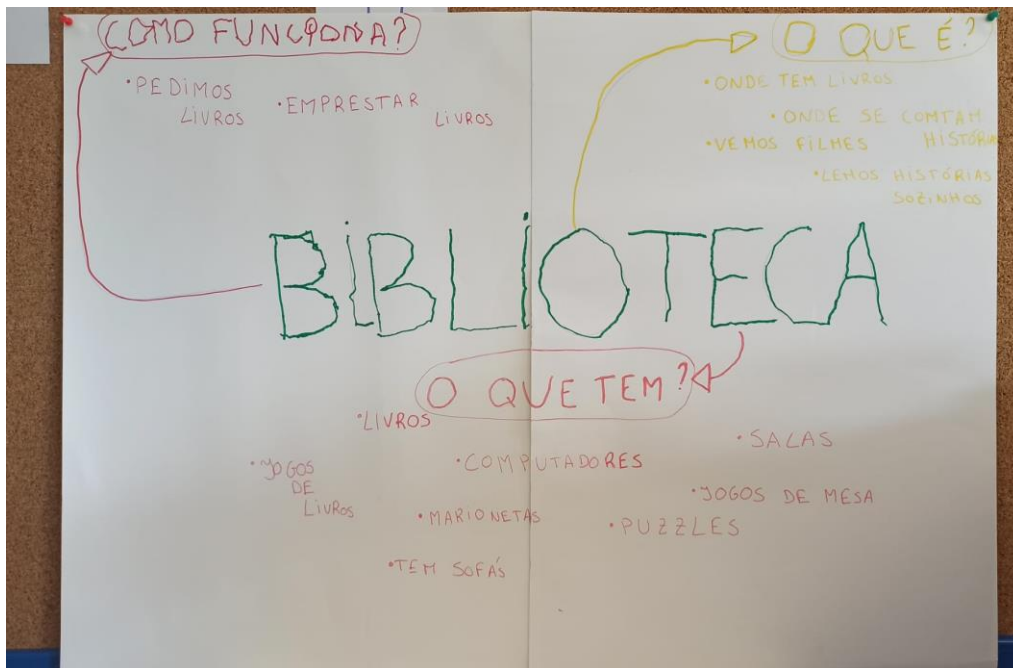 COMO FUNCIONA?
•PEDIMOS
LIVROS
•EMPRESTAR
LIVROS
O QUE É?
•ONDE TEM LIVROS
•ONDE SE COMTAM
HISTÓRIA
•VEMOS FILMES
•LEMOS HISTÓRIAS
SOZINHOS
BIBLIOTECA
O QUE TEM?
•LIVROS
•SALAS
•JOGOS
DE
LIVROS
•COMPUTADORES
•JOGOS DE MESA
•MARIONETAS
•PUZZLES
•TEM SOFÁS